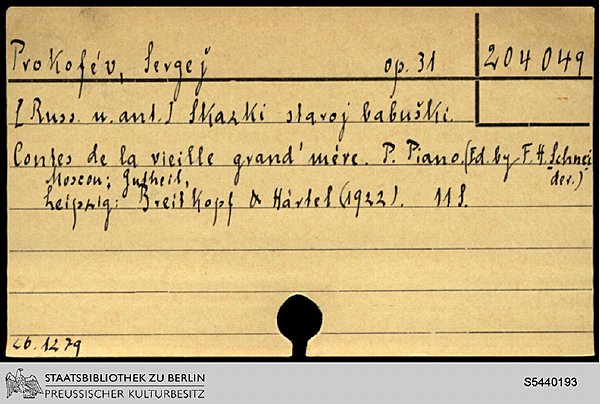 Prokofév, Sergej op. 31 204 049
[Russ. u. ant.] Skazki staroj babuški.
Contes de la vieille grand'mère. P. Piano. (Ed. by F. H. Schnei-
der.)
Moscou; Gutheil,
Leipzig: Breitkopf & Härtel (1922). 11 S.
cb. 1279
STAATSBIBLIOTHEK ZU BERLIN
PREUSSISCHER KULTURBESITZ
S5440193